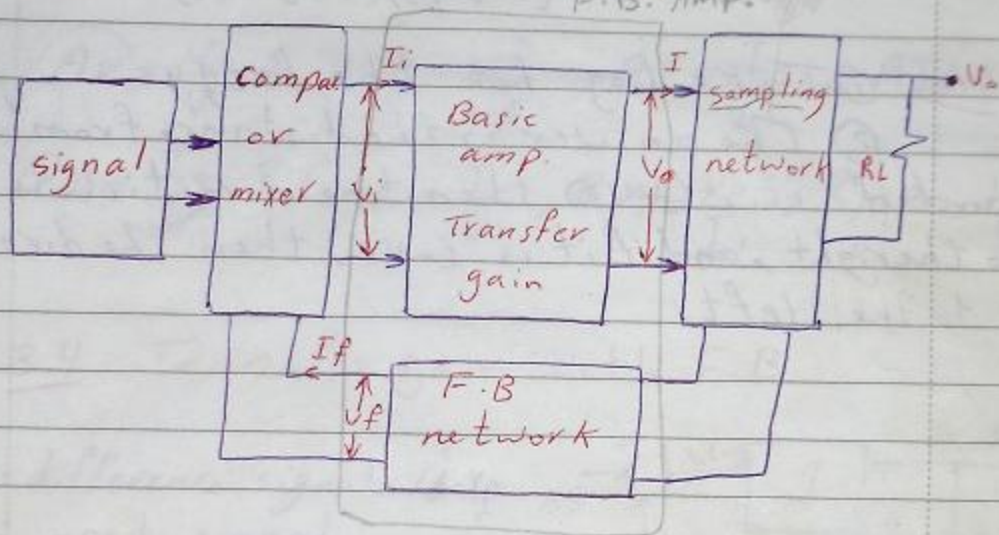 F.B. Amp.
signal
compa
or
mixer
Ii
Vi
Basic
amp.
Transfer
gain
I
Vo
sampling
network
RL
Vo
If
Vf
F.B
network